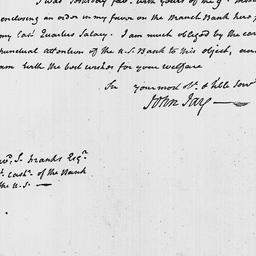 I was yesterday fav. with yours of the 9th
enclosing an order in my favor on the Branch Bank here for
my last Quarters Salary. I am much obliged by the care
punctual attention of the U.S. Bank to this object, and
am with the best wishes for your welfare
Sir your most ob. & hble serv.
John Jay
S. Esqr.
cashr. of the Bank
the U.S.